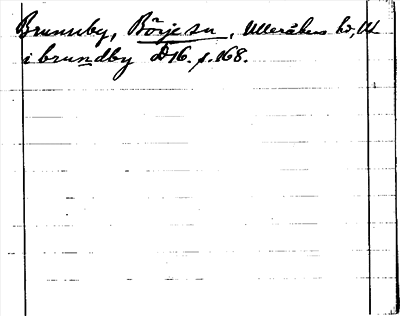 Brunnby, Börje sn, Ulleråkers hd, Ul.
i brundby D16. s. 168.